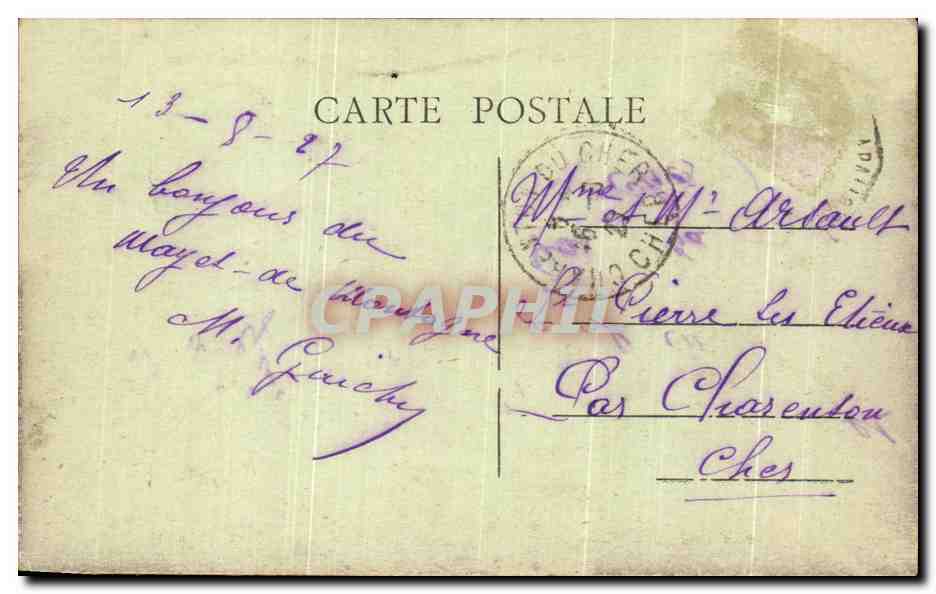 CARTE POSTALE
13-8-27
Un bonjour du
Mayet-de Montagne
M. Guichy
Mme et Mr Arsault
St Pierre les Etieux
Par Charenton
Cher
DU CHER
CPAPHIL